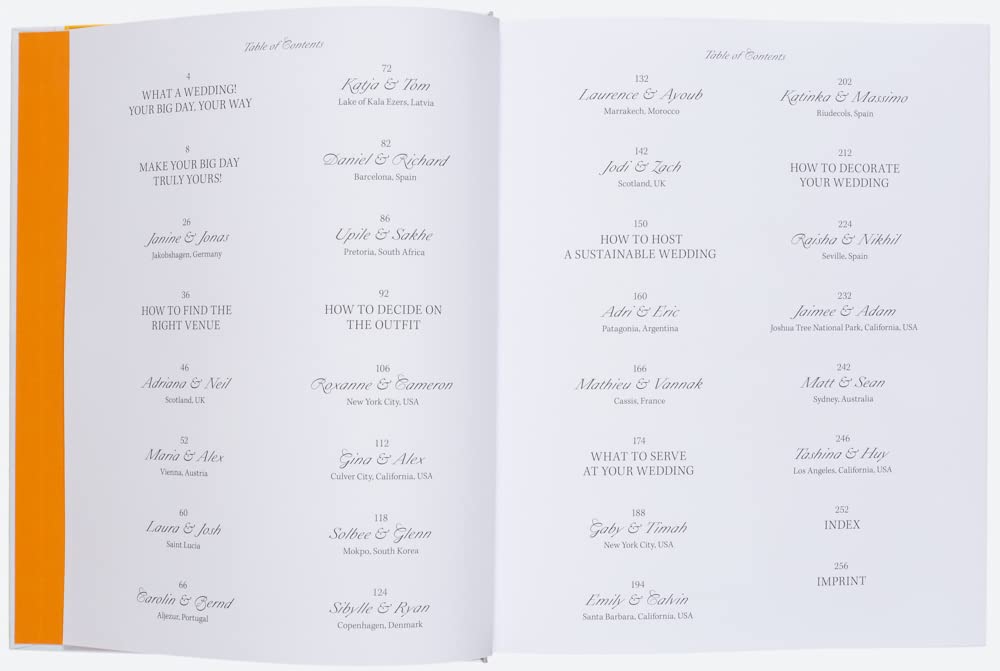 Table of Contents
4
WHAT A WEDDING!
YOUR BIG DAY. YOUR WAY
8
MAKE YOUR BIG DAY
TRULY YOURS!
26
Janine & Jonas
Jakobshagen, Germany
36
HOW TO FIND THE
RIGHT VENUE
46
Adriana & Neil
Scotland, UK
52
Maria & Alex
Vienna, Austria
60
Laura & Josh
Saint Lucia
66
Carolin & Bernd
Aljezur, Portugal
72
Katja & Tom
Lake of Kala Ezers, Latvia
82
Daniel & Richard
Barcelona, Spain
86
Upile & Sakhe
Pretoria, South Africa
92
HOW TO DECIDE ON
THE OUTFIT
106
Roxanne & Cameron
New York City, USA
112
Gina & Alex
Culver City, California, USA
118
Solbee & Glenn
Mokpo, South Korea
124
Sibylle & Ryan
Copenhagen, Denmark
Table of Contents
132
Laurence & Ayoub
Marrakech, Morocco
142
Jodi & Zach
Scotland, UK
150
HOW TO HOST
A SUSTAINABLE WEDDING
160
Adri & Eric
Patagonia, Argentina
166
Mathieu & Vannak
Cassis, France
174
WHAT TO SERVE
AT YOUR WEDDING
188
Gaby & Timah
New York City, USA
194
Emily & Calvin
Santa Barbara, California, USA
202
Katinka & Massimo
Riudecols, Spain
212
HOW TO DECORATE
YOUR WEDDING
224
Raisha & Nikhil
Seville, Spain
232
Jaimee & Adam
Joshua Tree National Park, California, USA
242
Matt & Sean
Sydney, Australia
246
Tashina & Huy
Los Angeles, California, USA
252
INDEX
256
IMPRINT